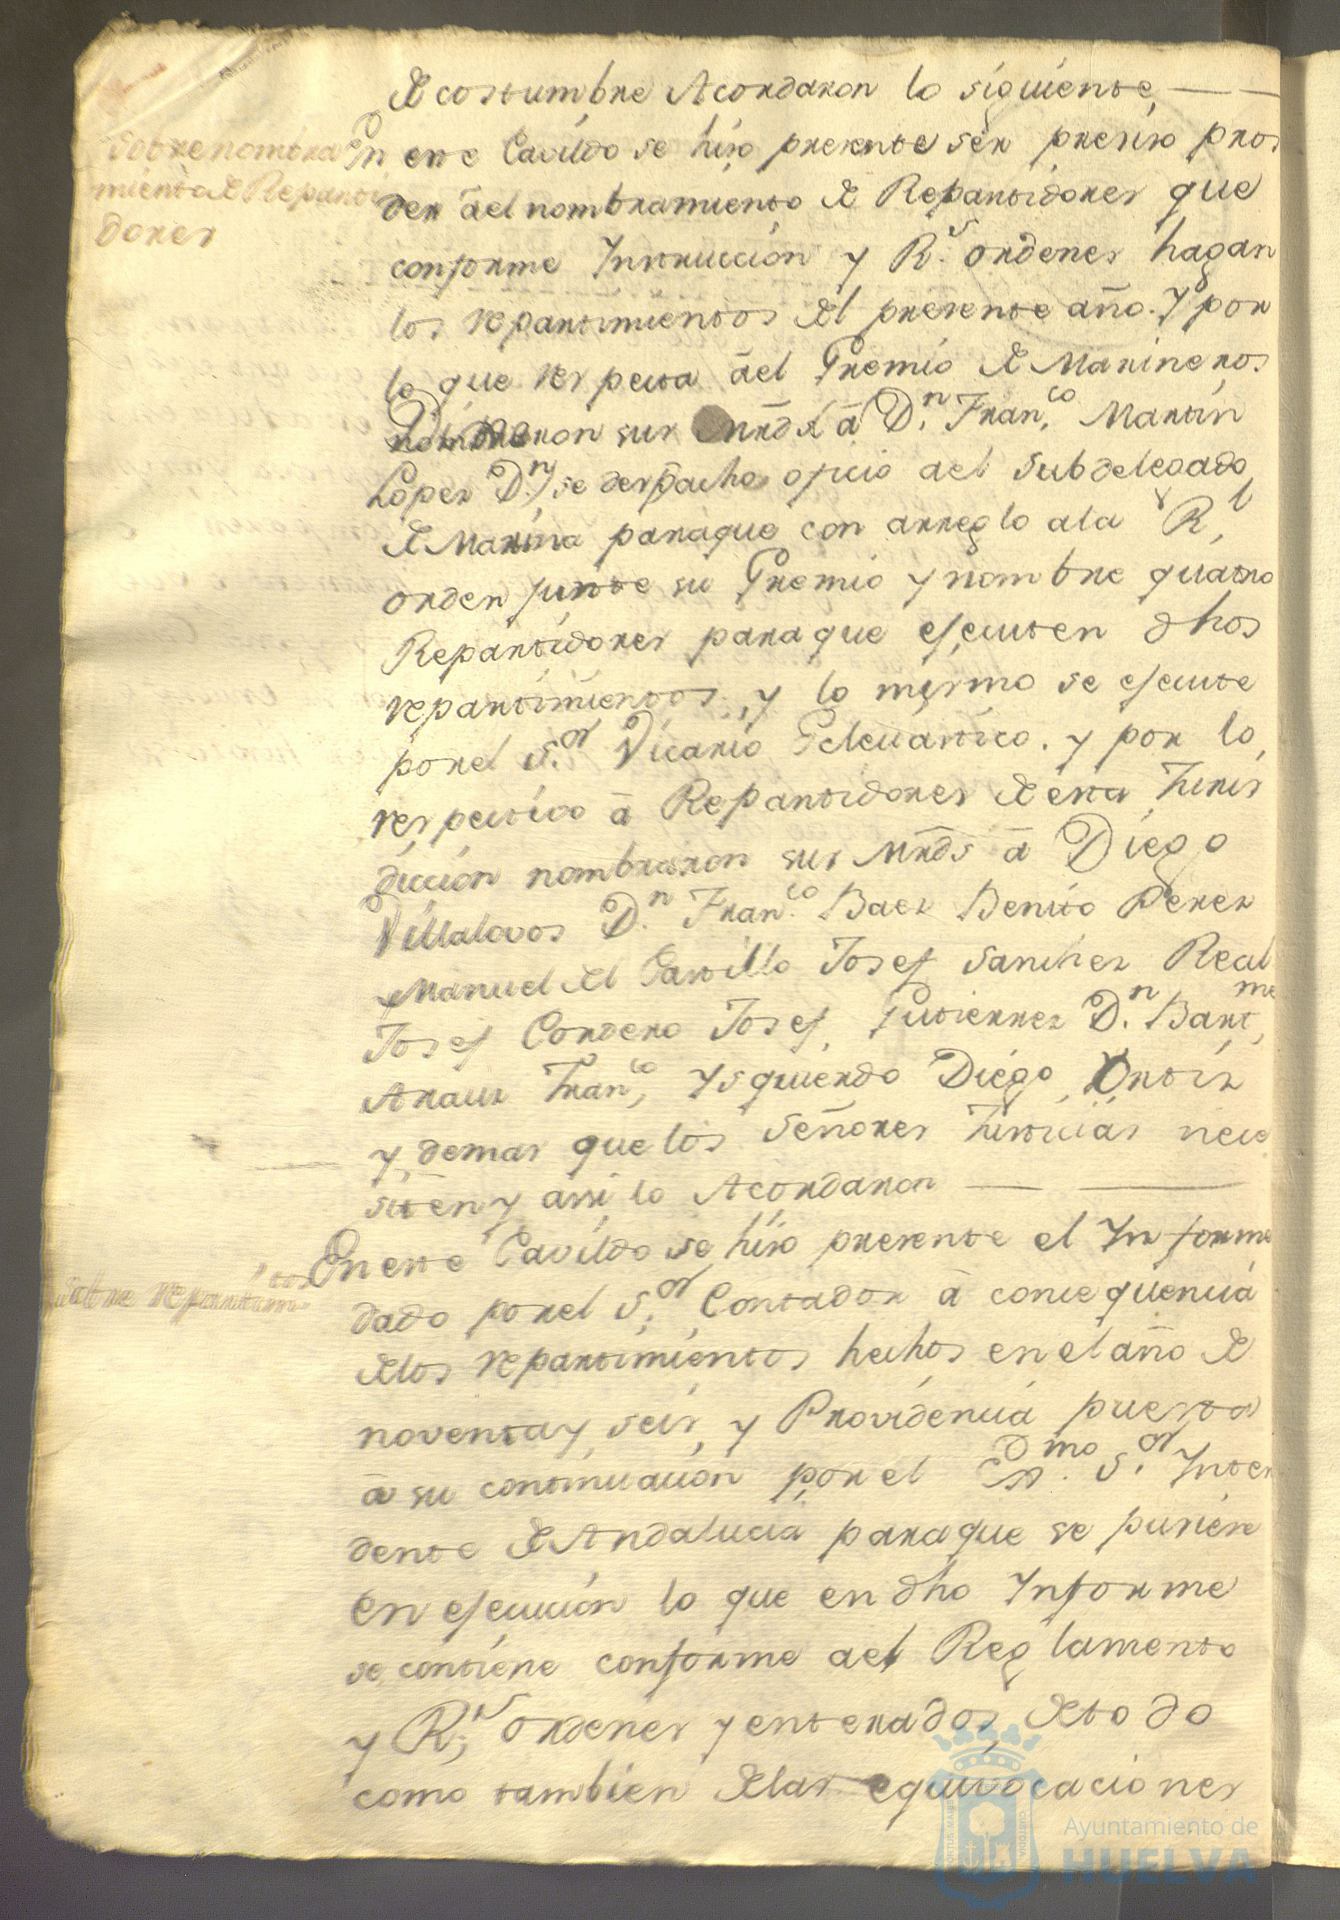 de costumbre Acordaron lo siguiente
sobre nombra
miento de Reparti
dores
En este Cavildo se hiso presente ser presiso pros
der àel nombramiento de Repartidores que
conforme Instruccion y R.s ordenes hagan
los repartimientos del presente año. Y por
lo que respecta àel Gremio de Marineros
nombraron sus mrds à D.n Fran.co Martin
Lopez D.n y se despacho oficio ael Subdelegado
de Marina paraque con arreglo ala R.l
orden junte su Gremio y nombre quatro
Repartidores paraque ejecuten dhos
repartimientos, y lo mismo se ejecute
porel S.or Vicario Eclesiastico. y por lo
respectivo à Repartidores de esta Juris
diccion nombraron sus Mrds à Diego
Villalovos D.n Fran.co Baez Benito Perez
Manuel del Castillo Josef Sanchez Real
Josef Cordero Josef Gutierrez D.n Bart.me
Arauz Fran.co Ysquierdo Diego Ortiz
y demas que los Señores Justicias nece
siten y assi lo Acordaron
sobre repartim.tos
En este Cavildo se hiso presente el Informe
dado porel S.or Contador à consequencia
delos repartimientos hechos en el año de
noventa y seis, y Providencia puesta
à su continuacion por el Ex.mo S.or Inten
dente de Andalucia paraque se pusiese
en ejecucion lo que en dho Informe
se contiene conforme ael Reglamento
y R.s ordenes y enterados de todo
como tambien delas equivocaciones
Ayuntamiento de
HUELVA